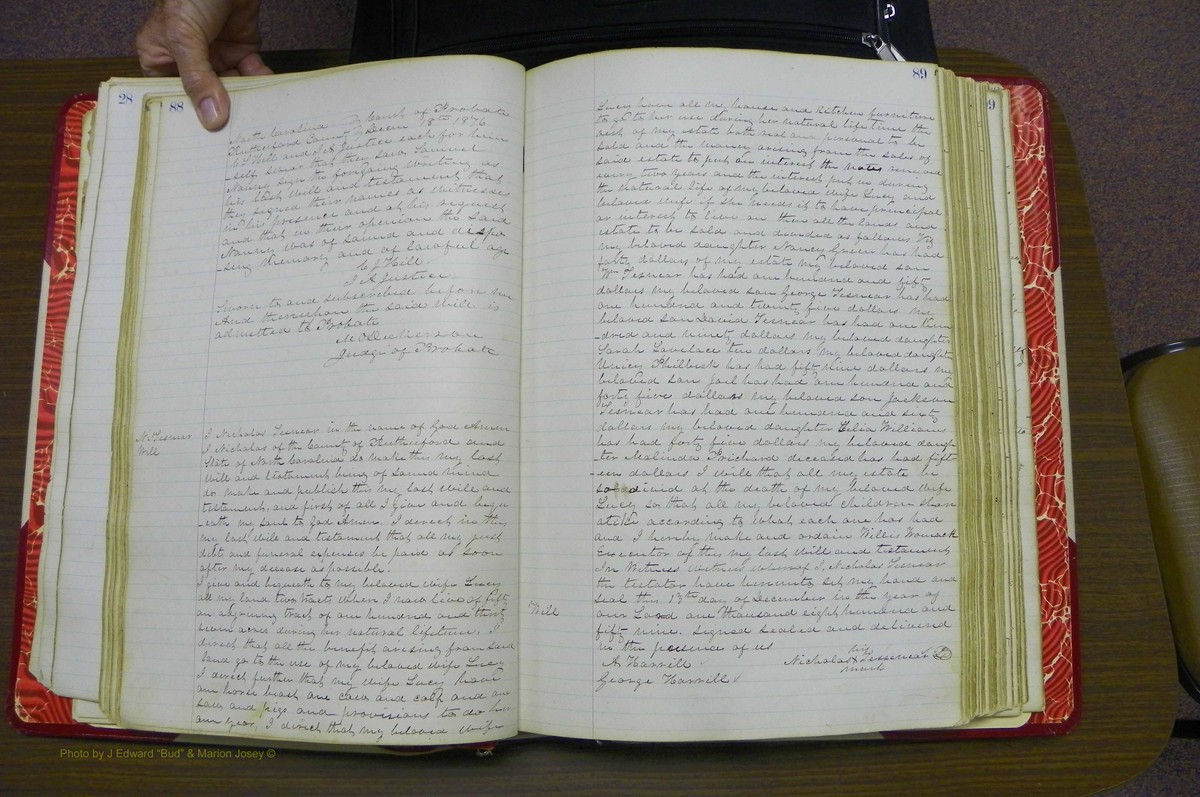 28
88
North Carolina } Court of Probate
Rutherford County } Decem 18th 1876
C J Hill and J A Justice each for him
self sware that they saw Samuel
Nanny sign the forgoing writing as
his last Will and testament that
they signed their names as witnesses
in his presence and at his request
and that in their openion the said
Nanny was of sound and dispo
sing Memory and of lawful age
C J Hill
J A Justice
Sworn to and subscribed before me
And thereupon the said Will is
admitted to Probate
M O Dickerson
Judge of Probate
N Tesnear
Will
I Nicholas Tesnear in the name of God Amen
I Nicholas of the County of Rutherford and
State of North Carolina do make this my last
Will and testament being of sound mind
do make and publish this my last Wile and
testament, and first of all I give and beque
eath my soul to God Amen. I derect in this
my last wile and testament that all my just
debts and funeral expenses be paid as soon
after my decease as possible.
I give and bequeath to my beloved wife Lucy
all my land two tracts where I now live of fift
an ajoining tract of one hundred and thirty
seven acres during her natural lifetime. I
direct that all the benefit aressing from said
land go to the use of my beloved wife Lucy
I direct further that my wife Lucy have
one horse beast one cow and calf and one
sow and pigs and provisions to do her
one year, I direct that my beloved wife
89
9
Lucy have all my house and kitchen furniture
to go to her use during her natural life time the
rest of my estate both real and personal to be
sold and the money arising from the sales of
said estate to put on interest the notes renewed
every two years and the interest put up during
the natural life of my beloved wife Lucy and
beloved wife if she needs it to have principal
or interest to live on then all the lands and
estate to be sold and devided as follows Viz
my beloved daughter Nancy Green has had
forty dollars of my estate my beloved son
Wm Tesnear has had one hundred and fifty
dollars my beloved son George Tesnear has had
one hundred and twenty five dollars my
beloved son David Tesnear has had one hun
dred and ninety dollars my beloved daughter
Sarah Lovelace ten dollars my beloved daughter
Philbeck has had fift nine dollars my
beloved son Joil has had one hundred and
forty five dollars my beloved son Jackson
Tesnear has had one hundred and sixty
dollars my beloved daughter Celia William
has had forty five dollars my beloved daugh
ter Malinda Prichard deceased has had fift
een dollars I wile that all my estate be
so divied at the death of my beloved wife
Lucy so that all my beloved children shear
alike according to what each one has had
and I hereby make and ordain Willis Womack
Executor of this my last Will and testament
In Witness witness whereof I, Nicholas Tesnear
the testator have hereunto set my hand and
seal this 13th day of December in the year of
Will
our Lord one thousand eight hundred and
fifty nine. Signed sealed and delivered
in the presence of us
A Harrill
George Harrill
his
Nicholas X Tesenear
mark
Photo by J Edward "Bud" & Marion Josey ©